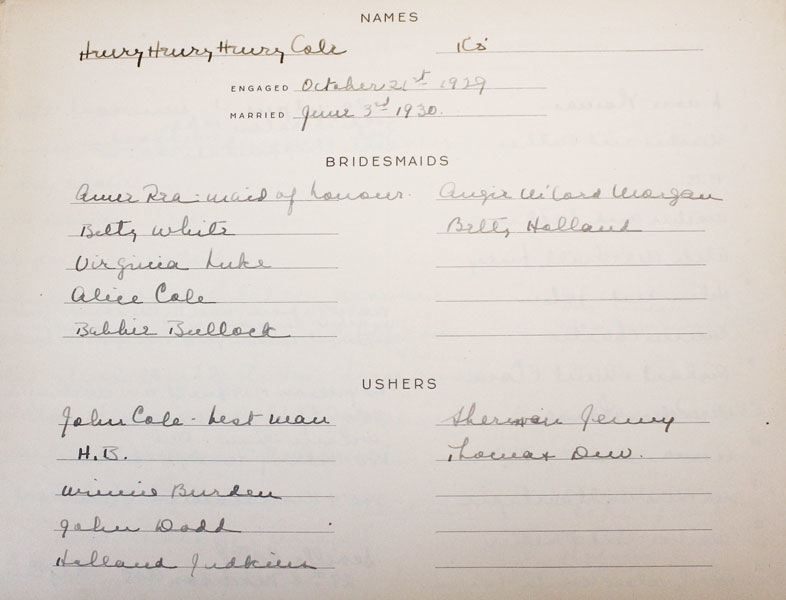 NAMES
Henry Henry Henry Cole
ENGAGED October 21st 1929
MARRIED June 3rd 1930.
BRIDESMAIDS
Anne Rea - maid of honour. Angie Morgan
Betty White Betty Holland
Virginia Luke
Alice Cole
Bobbie Bullock
USHERS
John Cole - best man Sherwin Jenny
H.B. Thomas Dew.
Winnie Burden
John Dodd
Holland Judkins